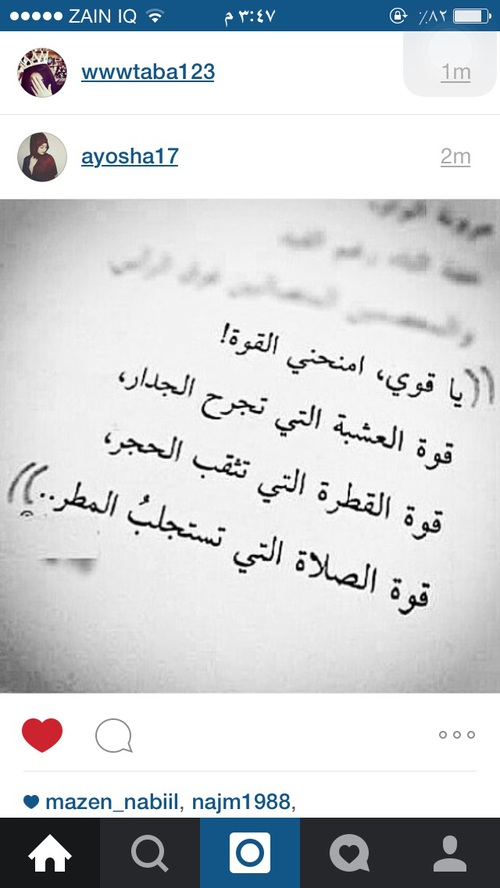 ZAIN IQ ٣:٤٧ م ٪٨٢
wwwtaba123 1m
ayosha17 2m
((يا قوي، امنحني القوة!
قوة العشبة التي تجرح الجدار،
قوة القطرة التي تثقب الحجر،
قوة الصلاة التي تستجلبُ المطر..))
mazen_nabiil, najm1988,